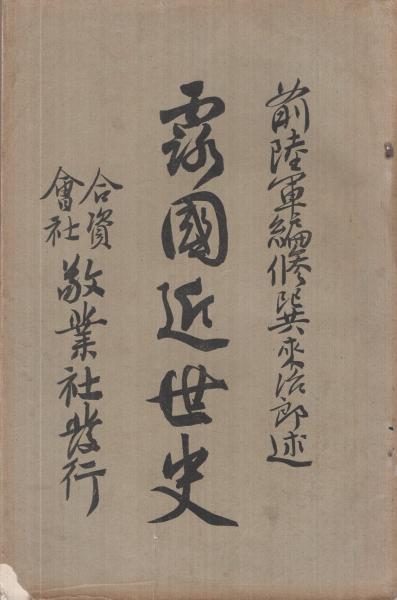 前陸軍編修巽來治郎述
露國近世史
合資會社敬業社發行